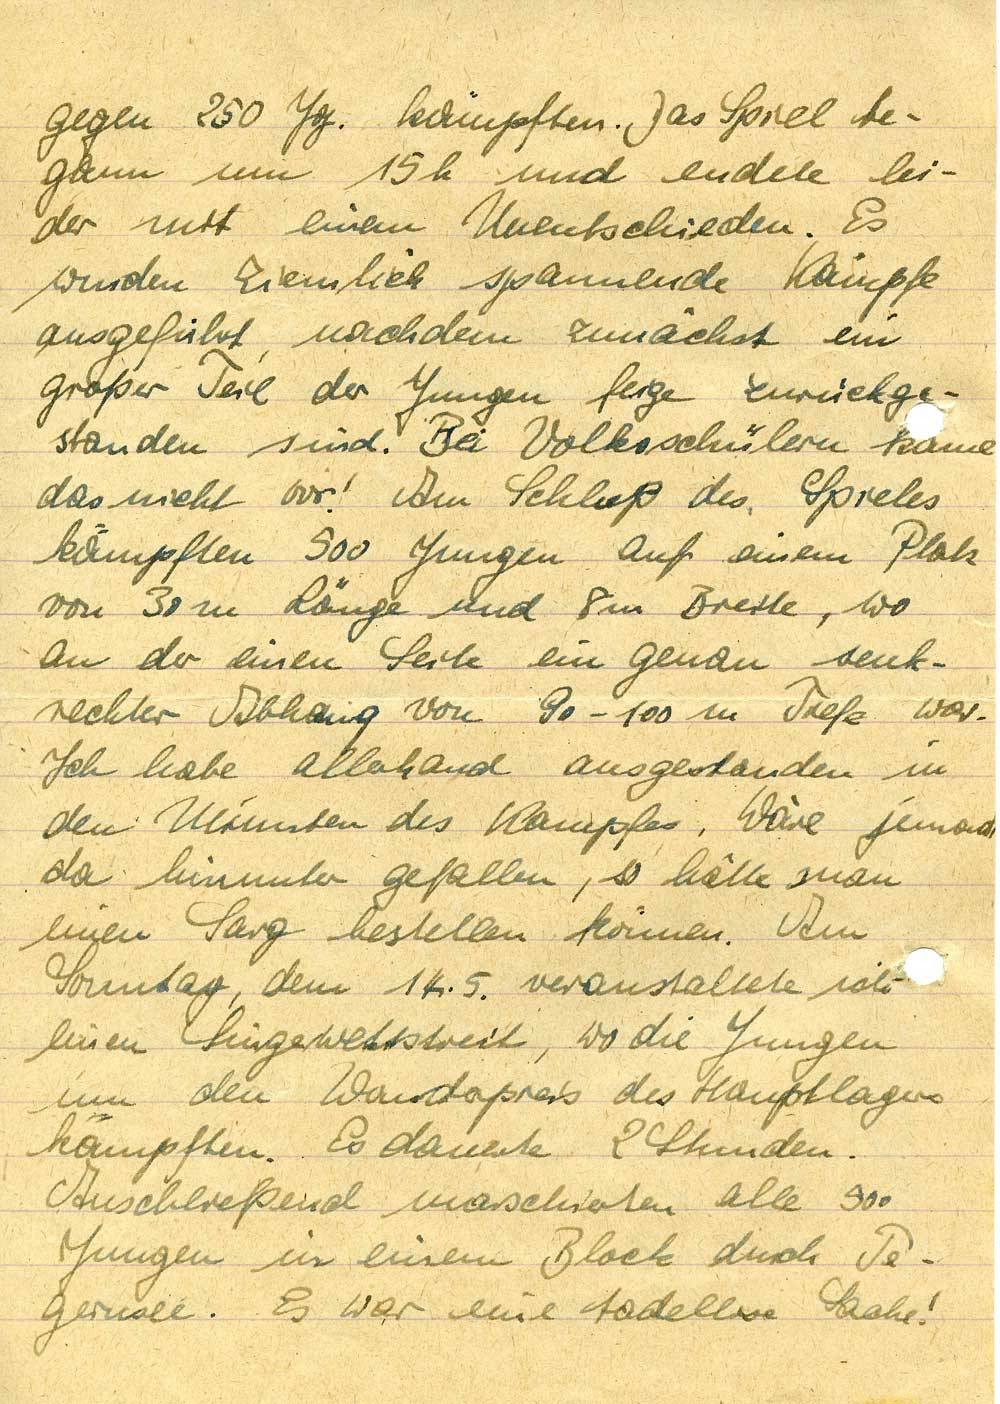 gegen 250 Jg. kämpften. Das Spiel be-
gann um 15 h und endete lei-
der mit einem Unentschieden. Es
wurden ziemlich spannende Kämpfe
ausgeführt, nachdem zunächst ein
großer Teil der Jungen feige zurückge-
standen sind. Bei Volksschülern käme
das nicht vor! Am Schluß des Spieles
kämpften 500 Jungen auf einem Platz
von 30 m Länge und 8 m Breite, wo
an der einen Seite ein genau senk-
rechter Abhang von 90-100 m Tiefe war.
Ich habe allerhand ausgestanden in
den Minuten des Kampfes. Wäre jemand
da hinunter gefallen, so hätte man
einen Sarg bestellen können. Am
Sonntag, dem 14.5. veranstaltete ich
einen Singewettstreit, wo die Jungen
um den Wanderpreis des Hauptlagers
kämpften. Es dauerte 2 Stunden.
Anschließend marschierten alle 500
Jungen in einem Block durch Te-
gernsee. Es war eine tadellose Sache!